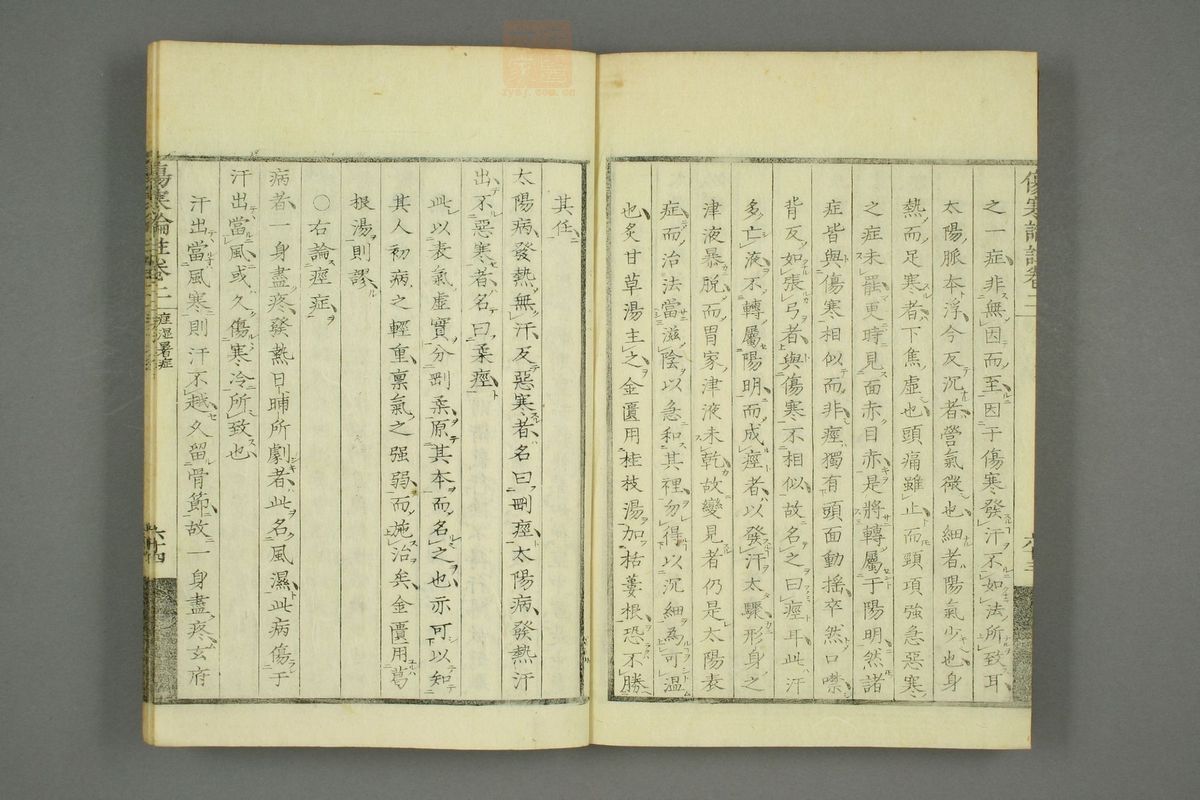 之一症非無因而至因于傷寒發汗不如法所致耳
太陽脈本浮今反沉者營氣微也細者陽氣少也身
熱而足寒者下焦虛也頭痛雖止而頸項強急惡寒
之症未罷更時見面赤目赤是將轉屬于陽明然諸
症皆與傷寒相似而非痙獨有頭面動搖卒然口噤
背反如張弓者與傷寒不相似故名之曰痙耳此汗
多亡液不轉屬陽明而成痙者以發汗太驟形身之
津液暴脫而胃家津液未乾故變見者仍是太陽表
症而治法當滋陰以急和其裡勿得以沉細為可溫
也炙甘草湯主之金匱用桂枝湯加栝蔞根恐不勝
其任
太陽病發熱無汗反惡寒者名曰剛痙太陽病發熱汗
出不惡寒者名曰柔痙
此以表氣虛實分剛柔原其本而名之也亦可以知
其人初病之輕重稟氣之强弱而施治矣金匱用葛
根湯則謬
〇右論痙症
病者一身盡疼發熱日晡所劇者此名風濕此病傷于
汗出當風或久傷寒冷所致也
汗出當風寒則汗不越久留骨節故一身盡疼玄府
傷寒論註卷二
痙湿暑症
六十四